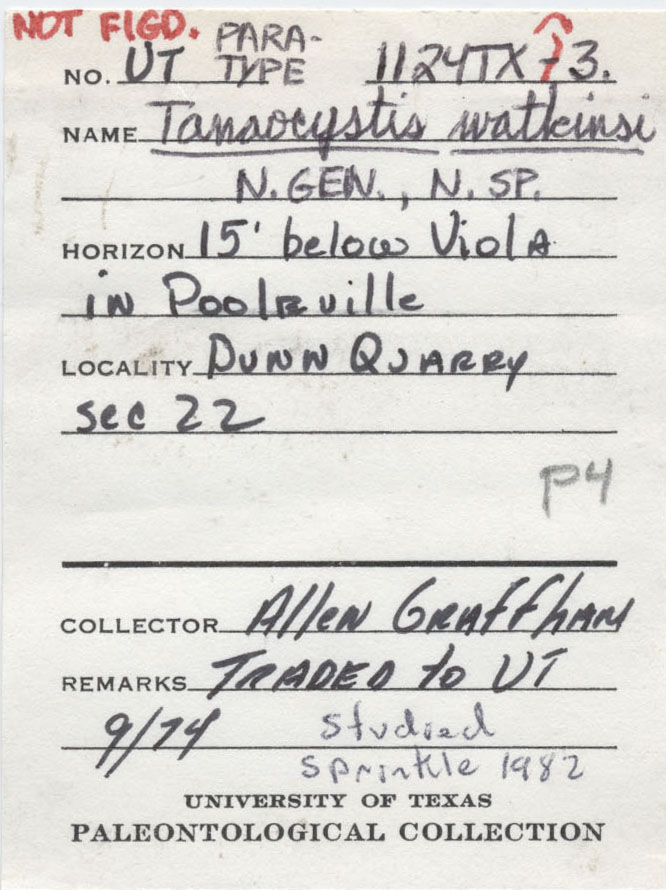 NOT FIGD.
NO. UT PARA-TYPE 1124TX-3.
NAME Tanaocystis watkinsi
N. GEN., N. SP.
HORIZON 15' below Viola
in Pooleville
LOCALITY Dunn Quarry
sec 22
P4
COLLECTOR Allen Graffham
REMARKS Traded to UT
9/74 studied
Sprinkle 1982
UNIVERSITY OF TEXAS
PALEONTOLOGICAL COLLECTION